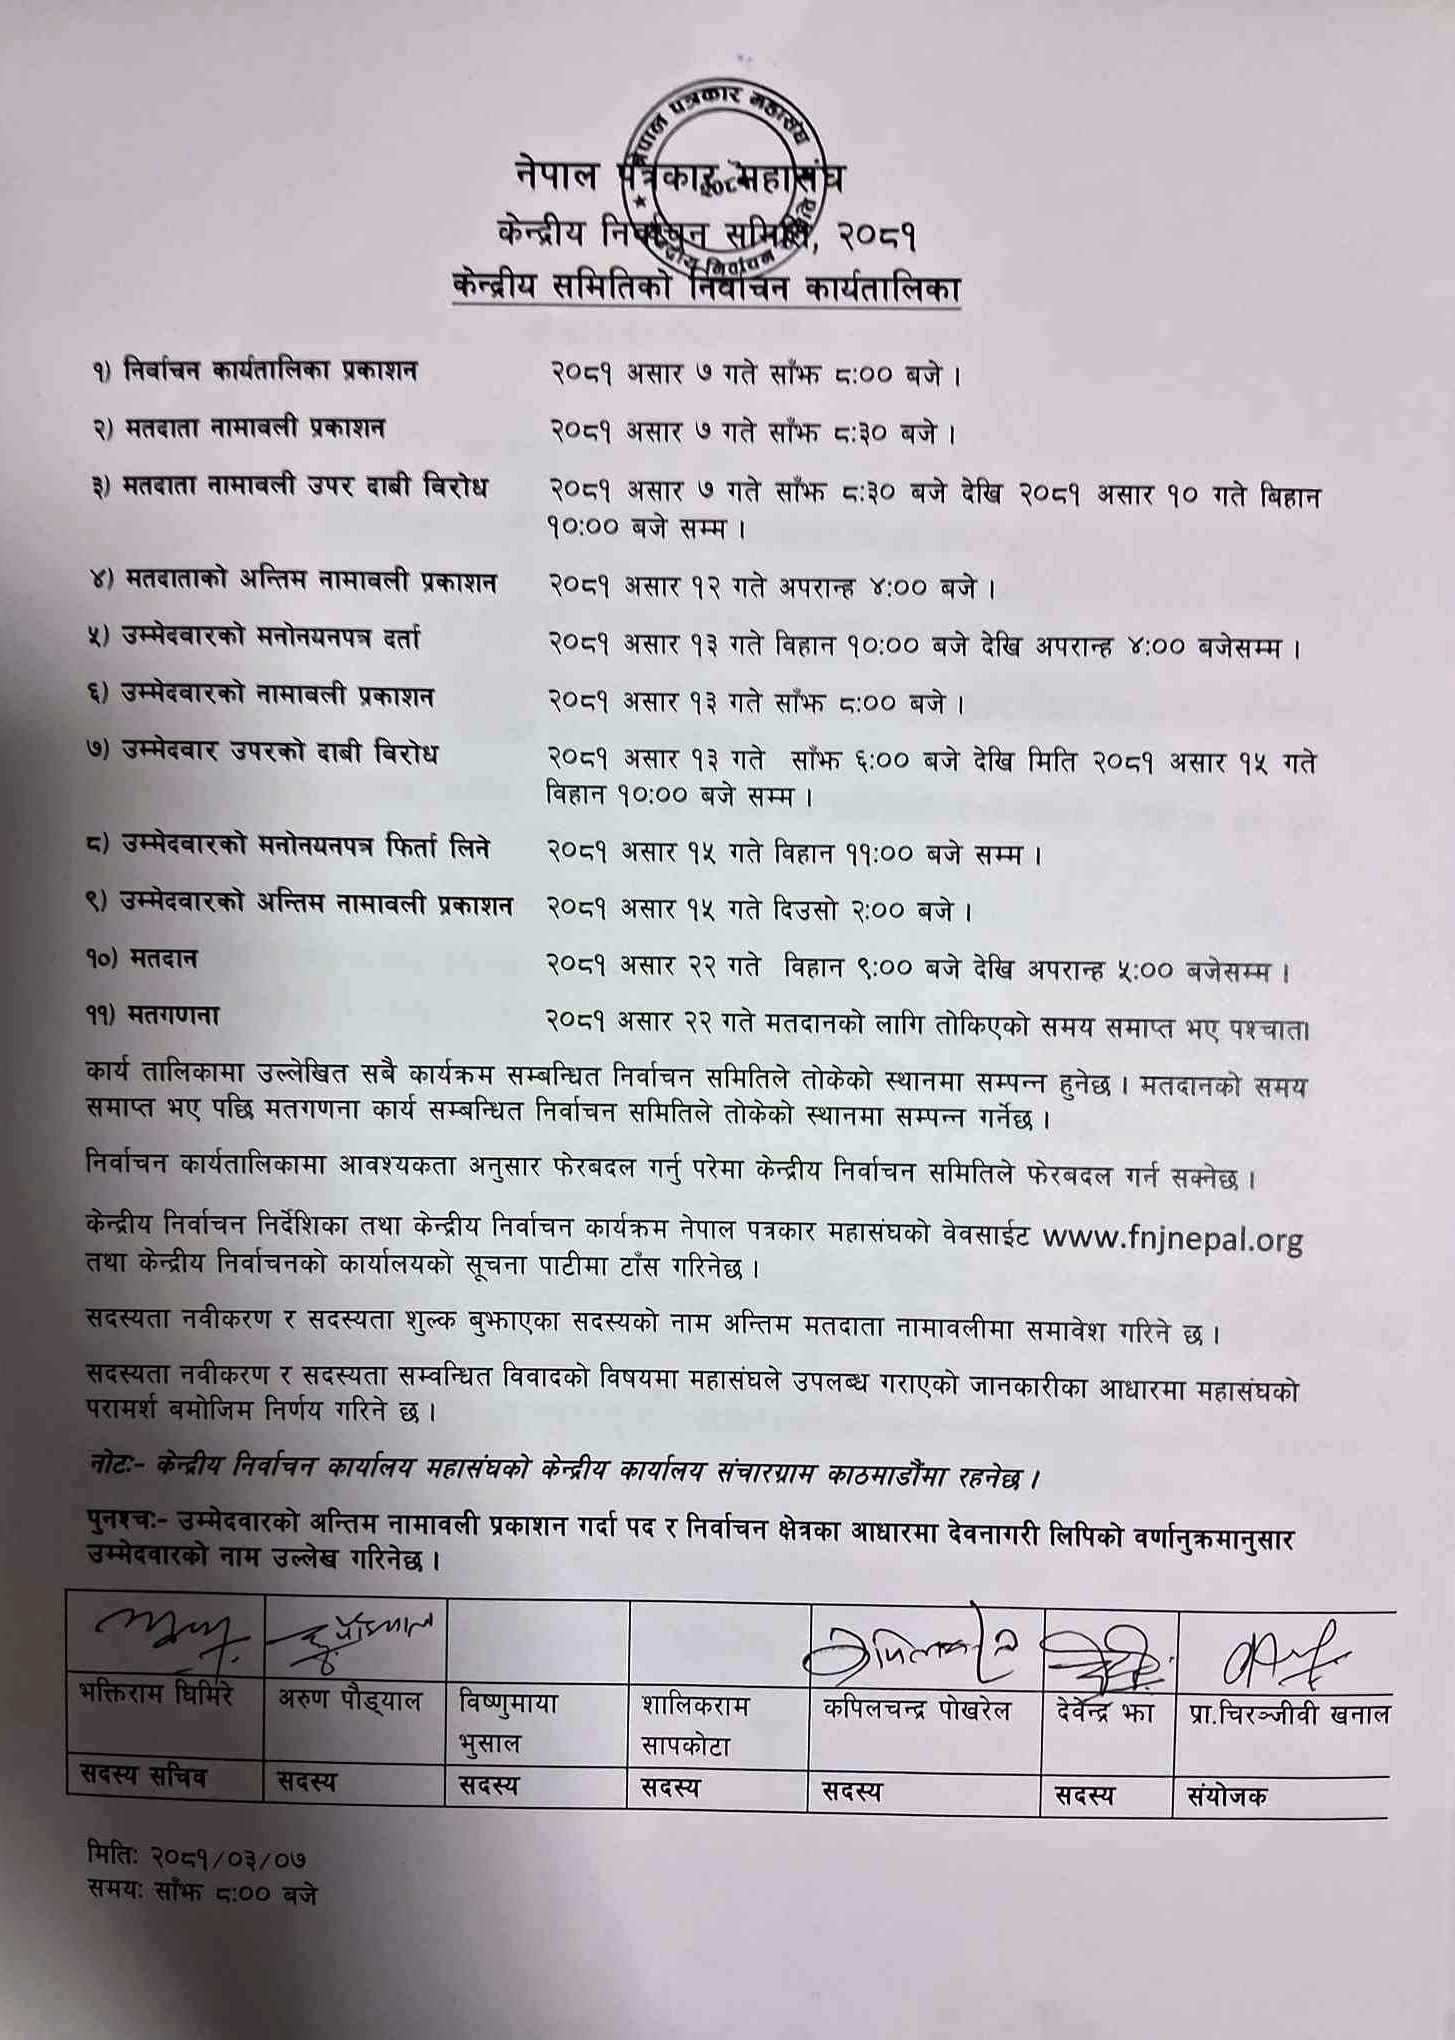 नेपाल पत्रकार महासंघ
नेपाल पत्रकार महासंघ
केन्द्रीय निर्वाचन समिति, २०८१
केन्द्रीय समितिको निर्वाचन कार्यतालिका
१) निर्वाचन कार्यतालिका प्रकाशन २०८१ असार ७ गते साँझ ८:०० बजे ।
२) मतदाता नामावली प्रकाशन २०८१ असार ७ गते साँझ ८:३० बजे ।
३) मतदाता नामावली उपर दाबी विरोध २०८१ असार ७ गते साँझ ८:३० बजे देखि २०८१ असार १० गते बिहान
१०:०० बजे सम्म ।
४) मतदाताको अन्तिम नामावली प्रकाशन २०८१ असार १२ गते अपरान्ह ४:०० बजे ।
५) उम्मेदवारको मनोनयनपत्र दर्ता २०८१ असार १३ गते विहान १०:०० बजे देखि अपरान्ह ४:०० बजेसम्म ।
६) उम्मेदवारको नामावली प्रकाशन २०८१ असार १३ गते साँझ ८:०० बजे ।
७) उम्मेदवार उपरको दाबी विरोध २०८१ असार १३ गते साँझ ६:०० बजे देखि मिति २०८१ असार १५ गते
विहान १०:०० बजे सम्म ।
८) उम्मेदवारको मनोनयनपत्र फिर्ता लिने २०८१ असार १५ गते विहान ११:०० बजे सम्म ।
९) उम्मेदवारको अन्तिम नामावली प्रकाशन २०८१ असार १५ गते दिउसो २:०० बजे ।
१०) मतदान २०८१ असार २२ गते विहान ९:०० बजे देखि अपरान्ह ५:०० बजेसम्म ।
११) मतगणना २०८१ असार २२ गते मतदानको लागि तोकिएको समय समाप्त भए पश्चात।
कार्य तालिकामा उल्लेखित सबै कार्यक्रम सम्बन्धित निर्वाचन समितिले तोकेको स्थानमा सम्पन्न हुनेछ । मतदानको समय
समाप्त भए पछि मतगणना कार्य सम्बन्धित निर्वाचन समितिले तोकेको स्थानमा सम्पन्न गर्नेछ ।
निर्वाचन कार्यतालिकामा आवश्यकता अनुसार फेरबदल गर्नु परेमा केन्द्रीय निर्वाचन समितिले फेरबदल गर्न सक्नेछ ।
केन्द्रीय निर्वाचन निर्देशिका तथा केन्द्रीय निर्वाचन कार्यक्रम नेपाल पत्रकार महासंघको वेवसाईट www.fnjnepal.org
तथा केन्द्रीय निर्वाचनको कार्यालयको सूचना पाटीमा टाँस गरिनेछ ।
सदस्यता नवीकरण र सदस्यता शुल्क बुझाएका सदस्यको नाम अन्तिम मतदाता नामावलीमा समावेश गरिने छ ।
सदस्यता नवीकरण र सदस्यता सम्वन्धित विवादको विषयमा महासंघले उपलब्ध गराएको जानकारीका आधारमा महासंघको
परामर्श बमोजिम निर्णय गरिने छ ।
नोटः- केन्द्रीय निर्वाचन कार्यालय महासंघको केन्द्रीय कार्यालय संचारग्राम काठमाडौंमा रहनेछ ।
पुनश्चः- उम्मेदवारको अन्तिम नामावली प्रकाशन गर्दा पद र निर्वाचन क्षेत्रका आधारमा देवनागरी लिपिको वर्णानुक्रमानुसार
उम्मेदवारको नाम उल्लेख गरिनेछ ।
भक्तिराम घिमिरे अरुण पौड्याल विष्णुमाया भुसाल शालिकराम सापकोटा कपिलचन्द्र पोखरेल देवेन्द्र झा प्रा.चिरञ्जीवी खनाल
सदस्य सचिव सदस्य सदस्य सदस्य सदस्य सदस्य संयोजक
मितिः २०८१/०३/०७
समयः साँझ ८:०० बजे